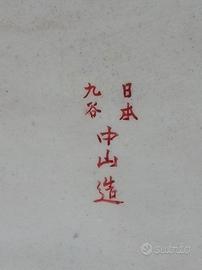 日本
九谷
中山造
subito